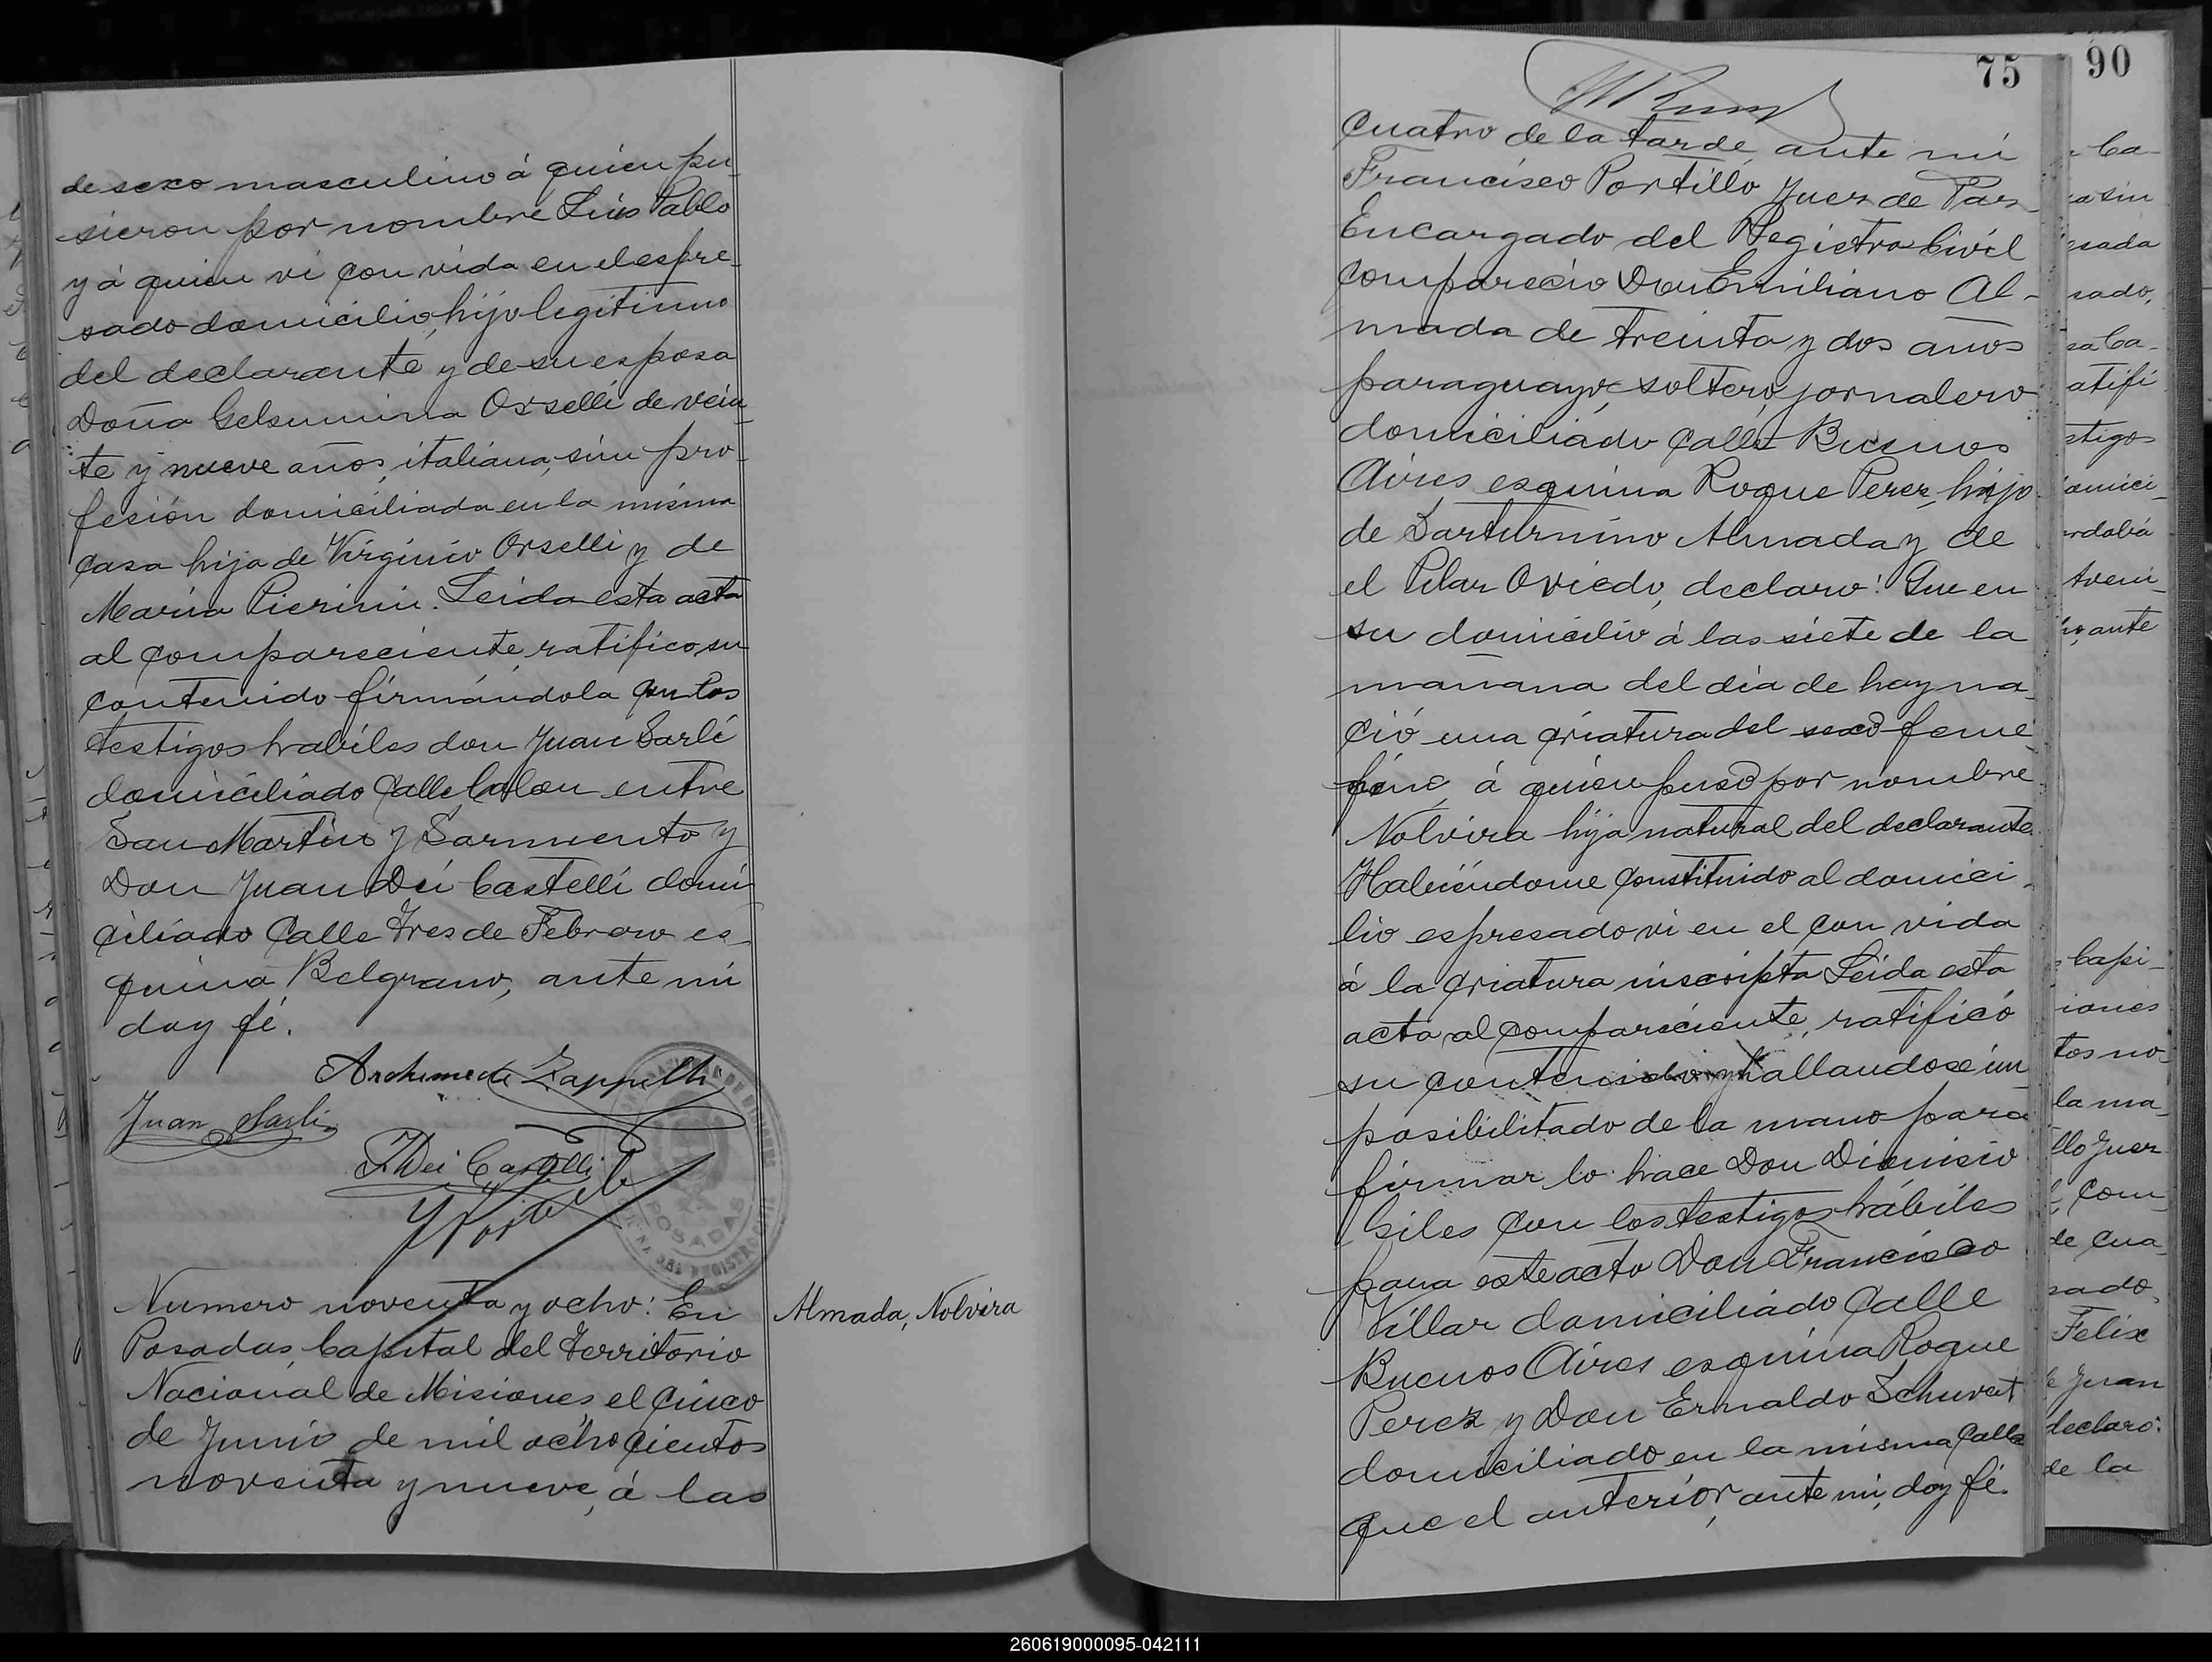 de sexo masculino á quien pu-
sieron por nombre Luis Pablo
y á quien vi con vida en el espre-
sado domicilio, hijo legitimo
del declarante y de su esposa
Doña Gelsumina Orselli de vein-
te y nueve años, italiana, sin pro-
fesión domiciliada en la misma
casa hija de Virginio Orselli y de
Maria Pierinii. Leida esta acta
al compareciente, ratifico su
contenido firmándola con los
testigos habiles don Juan Sarli
domiciliado Calle Colon entre
San Martin y Sarmiento y
Don Juan Dei Castelli domi-
ciliado Calle Tres de Febrero es-
quina Belgrano, ante mi
doy fé.
Archimede Zappelli
Juan Sarli
J. Dei Castelli
POSADAS
Numero noventa y ocho: En
Almada, Nolvira
Posadas, Capital del Territorio
Nacional de Misiones el cinco
de Junio de mil ochocientos
noventa y nueve, á las
75
cuatro de la tarde, ante mi
Francisco Portillo Juez de Paz
Encargado del Registro Civil
comparecio Don Emiliano Al-
mada de treinta y dos años
paraguayo, soltero, jornalero
domiciliado calle Buenos
Aires esquina Roque Perez, hijo
de Sarturnino Almada y de
el Pilar Oviedo, declaro: Que en
su domicilio á las siete de la
mañana del dia de hoy na-
ció una criatura del sexo feme-
á quien puso por nombre
Nolvira hija natural del declarante
Habiéndome constituido al domici-
lio espresado vi en el con vida
á la criatura inscripta Leida esta
acta al compareciente, ratificó
su contenido y hallandose im-
posibilitado de la mano para
firmar lo hace Don Dionisio
Giles con los testigos hábiles
para este acto Don Francisco
Villar domiciliado Calle
Buenos Aires esquina Roque
Perez y Don Ernaldo Schuvat
domiciliado en la misma Calle
que el anterior, ante mi, doy fé.
90
Ca-
sin
esada
sado,
sa Ca-
atifi
stigos
omici-
ordoba
treni-
ante
Capi-
iones
tos no-
la ma-
llo Juez
Com-
de cua-
sado,
Felix
e Juan
declaro:
de la
260619000095-042111